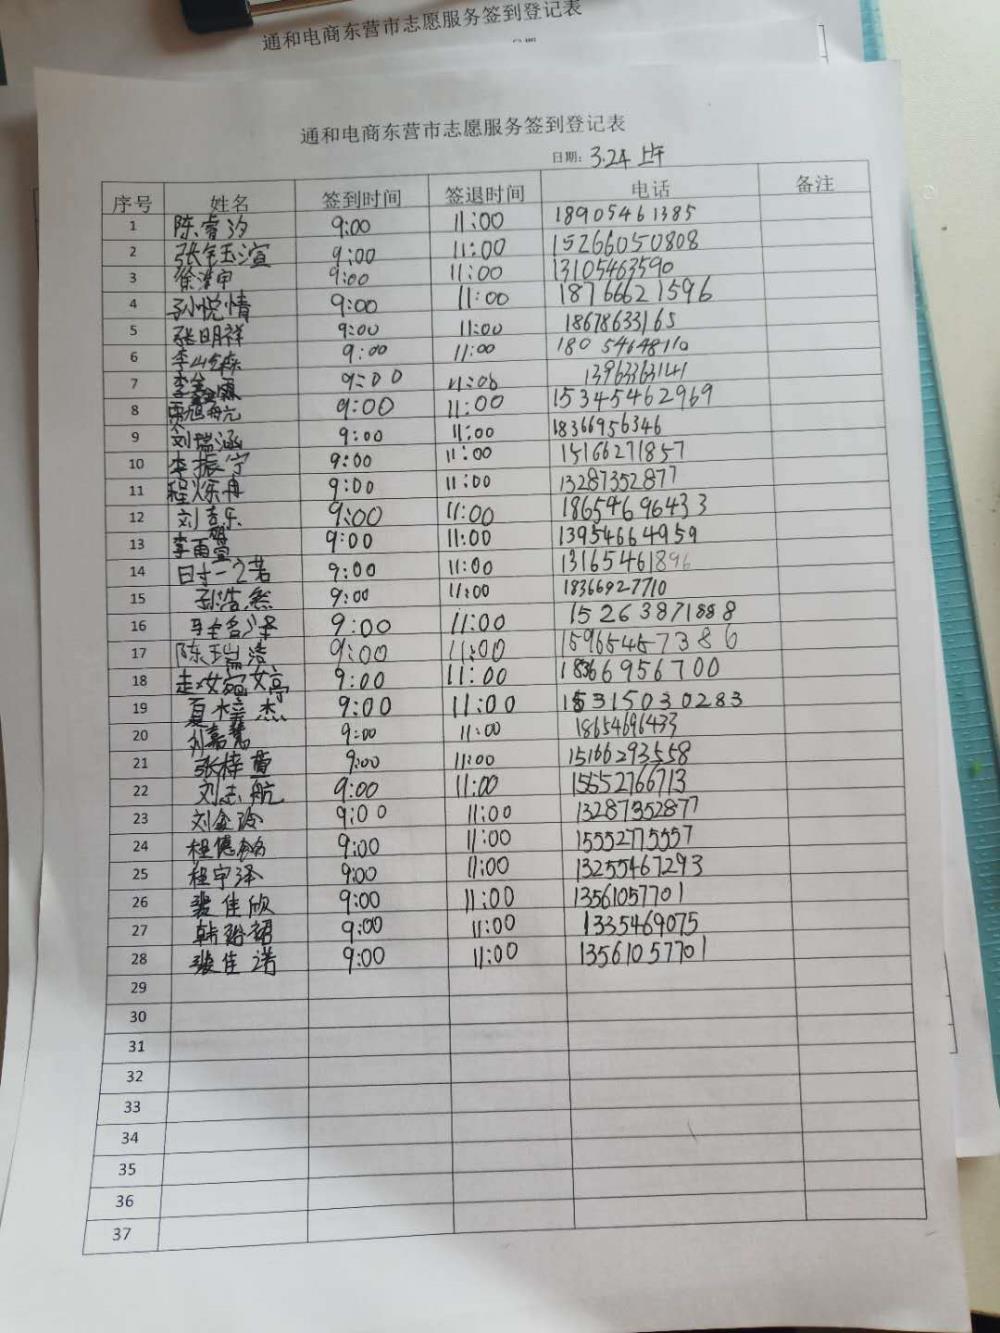 通和电商东营市志愿服务签到登记表
通和电商东营市志愿服务签到登记表
日期：3.24 上午
序号 姓名 签到时间 签退时间 电话 备注
1 陈睿汐 9:00 11:00 18905461385
2 张钰渲 9:00 11:00 15266050808
3 徐浩申 9:00 11:00 13105463590
4 孙悦情 9:00 11:00 18766621596
5 张明祥 9:00 11:00 18678633165
6 李山森 9:00 11:00 18054648110
7 李鑫 9:00 11:00 13963363141
8 旭航 9:00 11:00 15345462969
9 刘瑞涵 9:00 11:00 18366956346
10 李振宁 9:00 11:00 15166271857
11 程烁冉 9:00 11:00 13287352877
12 刘吉乐 9:00 11:00 18654696433
13 李雨萱 9:00 11:00 13954664959
14 时一诺 9:00 11:00 13165461896
15 孙浩然 9:00 11:00 18366927710
16 9:00 11:00 15263871888
17 陈瑞浩 9:00 11:00 15965457386
18 赵婉婷 9:00 11:00 18366956700
19 夏梓杰 9:00 11:00 15315030283
20 刘嘉慧 9:00 11:00 18654696433
21 张梓萱 9:00 11:00 15166293558
22 刘志航 9:00 11:00 15552766713
23 刘金玲 9:00 11:00 13287352877
24 程德铭 9:00 11:00 15552775557
25 程宇泽 9:00 11:00 13255467293
26 裴佳欣 9:00 11:00 13561057701
27 韩 9:00 11:00 1335469075
28 裴佳诺 9:00 11:00 13561057701
29
30
31
32
33
34
35
36
37